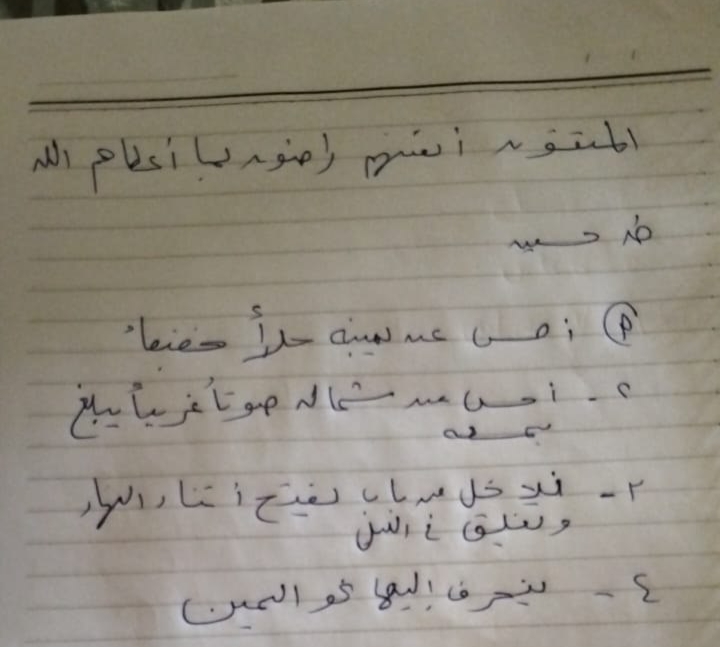 المتقون أنفسهم راضون بما أعطاهم الله
طه حسين
أحس عن يمينه حراً خفيفاً
٢- أحس عن شماله صوتاً غريباً يبلغ
سمعه
٣- فيدخل من باب يفتح أثناء النهار
ويغلق في الليل
٤- ينحرف إليها نحو اليمين